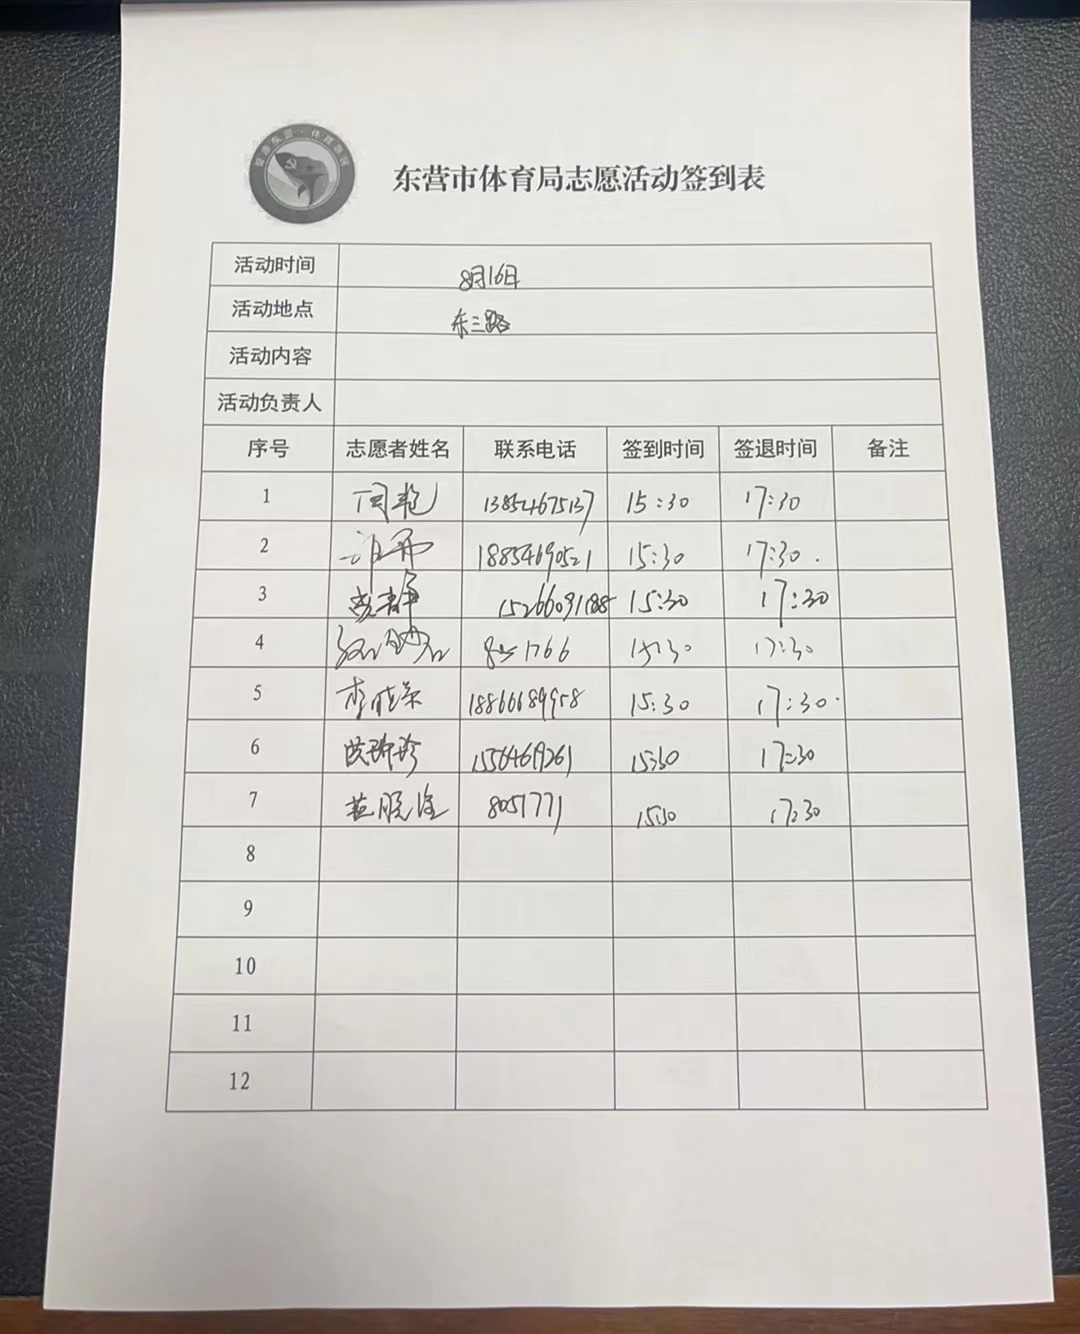 东营市体育局志愿活动签到表
活动时间 8月16日
活动地点 东三路
活动内容
活动负责人
序号 志愿者姓名 联系电话 签到时间 签退时间 备注
1 闫艳 13854675137 15:30 17:30
2 18854690521 15:30 17:30.
3 15266091188 15:30 17:30
4 8051766 15:30 17:30
5 李晓荣 18866689958 15:30 17:30.
6 15564619261 15:30 17:30
7 8051771 15:30 17:30
8
9
10
11
12